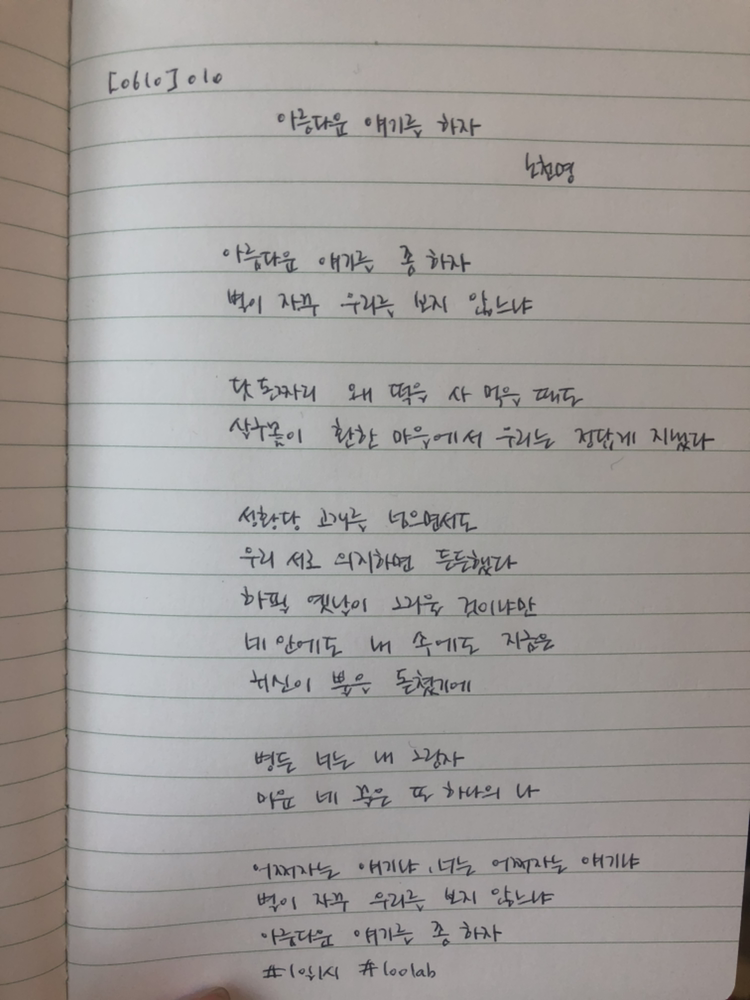 [0610] 010
아름다운 얘기를 하자
노천명
아름다운 얘기를 좀 하자
별이 자꾸 우리를 보지 않느냐
닷 돈짜리 왜 떡을 사 먹을 때도
살구꽃이 환한 마을에서 우리는 정답게 지냈다
성황당 고개를 넘으면서도
우리 서로 의지하면 든든했다
하필 옛날이 그리울 것이냐만
네 안에도 내 속에도 지금은
귀신이 뿔을 돋쳤기에
병든 너는 내 그림자
미운 네 꼴은 또 하나의 나
어쩌자는 얘기냐, 너는 어쩌자는 얘기냐
별이 자꾸 우리를 보지 않느냐
아름다운 얘기를 좀 하자
#1일1시 #100lab